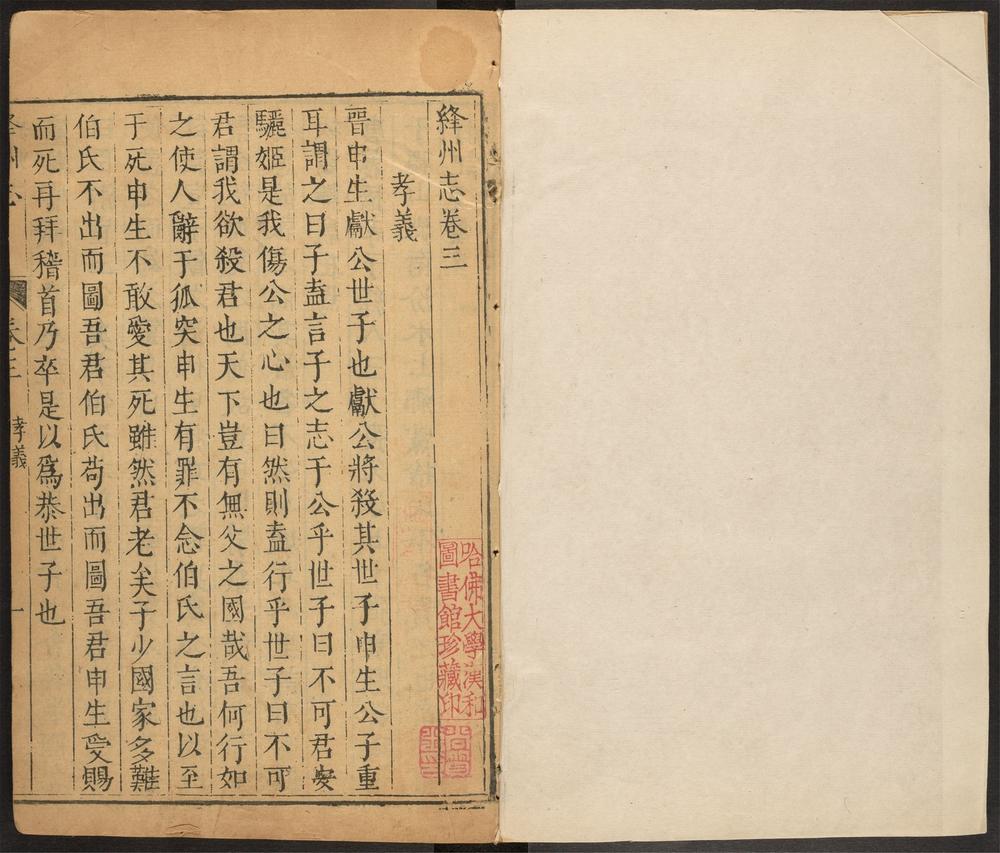 絳州志卷三
孝義
晉申生獻公世子也獻公將殺其世子申生公子重
耳謂之曰子盍言子之志于公乎世子曰不可君安
驪姬是我傷公之心也曰然則盍行乎世子曰不可
君謂我欲殺君也天下豈有無父之國哉吾何行如
之使人辭于狐突申生有罪不念伯氏之言也以至
于死申生不敢愛其死雖然君老矣子少國家多難
伯氏不出而圖吾君伯氏苟出而圖吾君申生受賜
而死再拜稽首乃卒是以爲恭世子也
卷三 孝義 一
哈佛大學漢和
圖書館珍藏印